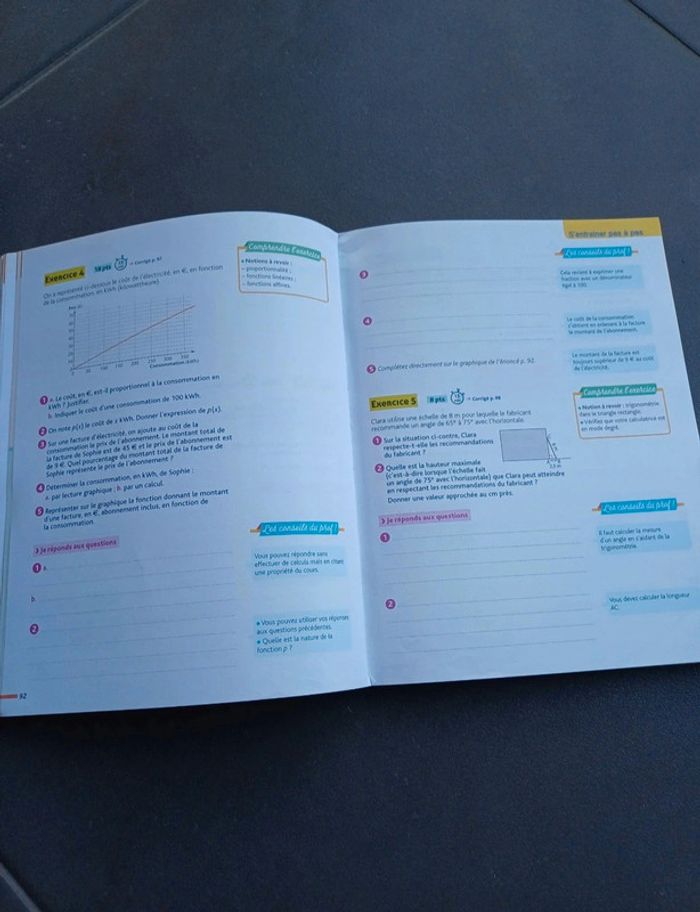 Exercice 4
10 pts
→ Corrigé p. 97
On a représenté ci-dessous le coût de l'électricité, en €, en fonction
de la consommation, en kWh (kilowattheure).
50 100 150 200 250 300 350
Consommation (kWh)
Comprendre l'exercice
• Notions à revoir :
– proportionnalité ;
– fonctions linéaires ;
– fonctions affines.
1 a. Le coût, en €, est-il proportionnel à la consommation en
kWh ? Justifier.
b. Indiquer le coût d'une consommation de 100 kWh.
2 On note p(x) le coût de x kWh. Donner l'expression de p(x).
3 Sur une facture d'électricité, on ajoute au coût de la
consommation le prix de l'abonnement. Le montant total de
la facture de Sophie est de 45 € et le prix de l'abonnement est
de 9 €. Quel pourcentage du montant total de la facture de
Sophie représente le prix de l'abonnement ?
4 Déterminer la consommation, en kWh, de Sophie :
a. par lecture graphique ; b. par un calcul.
5 Représenter sur le graphique la fonction donnant le montant
d'une facture, en €, abonnement inclus, en fonction de
la consommation.
Je réponds aux questions
1 a.
b.
2
Les conseils du prof !
Vous pouvez répondre sans
effectuer de calculs mais en citant
une propriété du cours.
• Vous pouvez utiliser vos réponses
aux questions précédentes.
• Quelle est la nature de la
fonction p ?
92
S'entraîner pas à pas
Les conseils du prof !
3
Cela revient à exprimer une
fraction avec un dénominateur
égal à 100.
4
Le coût de la consommation
s'obtient en enlevant à la facture
le montant de l'abonnement.
5 Complétez directement sur le graphique de l'énoncé p. 92.
Le montant de la facture est
toujours supérieur de 9 € au coût
de l'électricité.
Exercice 5
8 pts
→ Corrigé p. 98
Clara utilise une échelle de 8 m pour laquelle le fabricant
recommande un angle de 65° à 75° avec l'horizontale.
1 Sur la situation ci-contre, Clara
respecte-t-elle les recommandations
du fabricant ?
2 Quelle est la hauteur maximale
(c'est-à-dire lorsque l'échelle fait
un angle de 75° avec l'horizontale) que Clara peut atteindre
en respectant les recommandations du fabricant ?
Donner une valeur approchée au cm près.
Comprendre l'exercice
• Notion à revoir : trigonométrie
dans le triangle rectangle.
• Vérifiez que votre calculatrice est
en mode degré.
Je réponds aux questions
1
Les conseils du prof !
Il faut calculer la mesure
d'un angle en s'aidant de la
trigonométrie.
2
Vous devez calculer la longueur
AC.